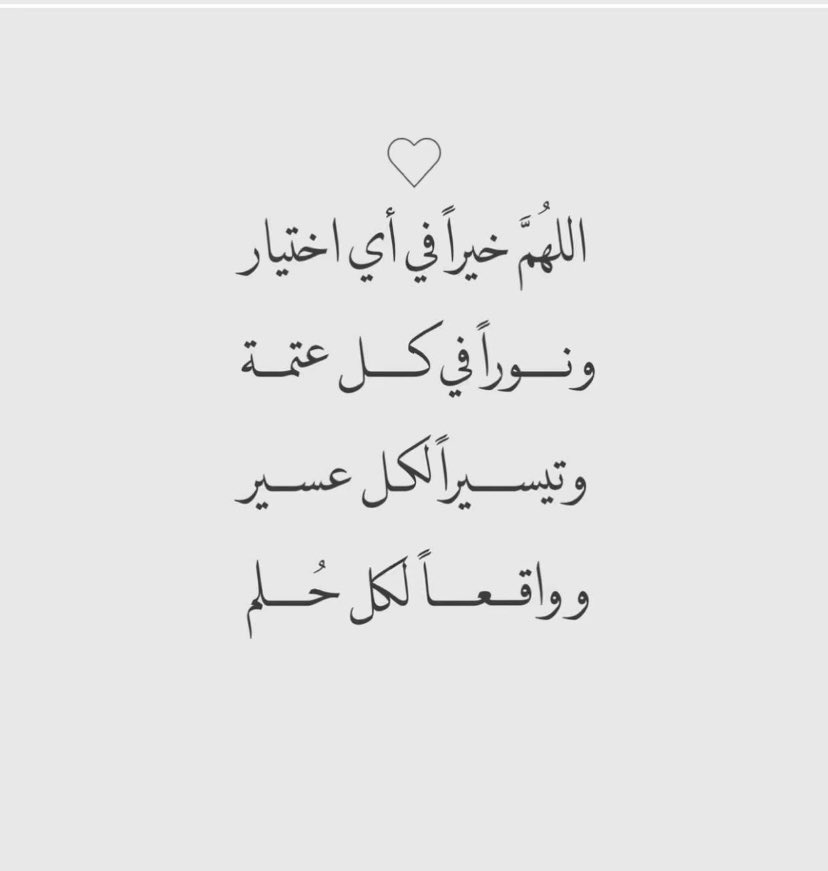 اللهُمَّ خيراً في أي اختيار
ونــوراً في كــل عتمــة
وتيســيراً لكل عســير
وواقــعــاً لكل حُــلم